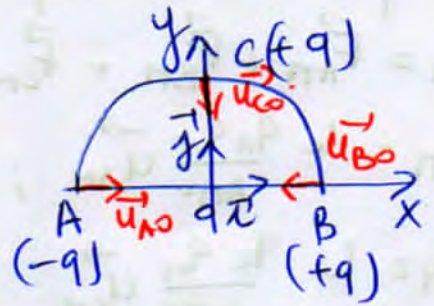 y C(+q)
u⃗_CO
j⃗ u⃗_BO
u⃗_AO
A O i⃗ B x
(-q) (+q)